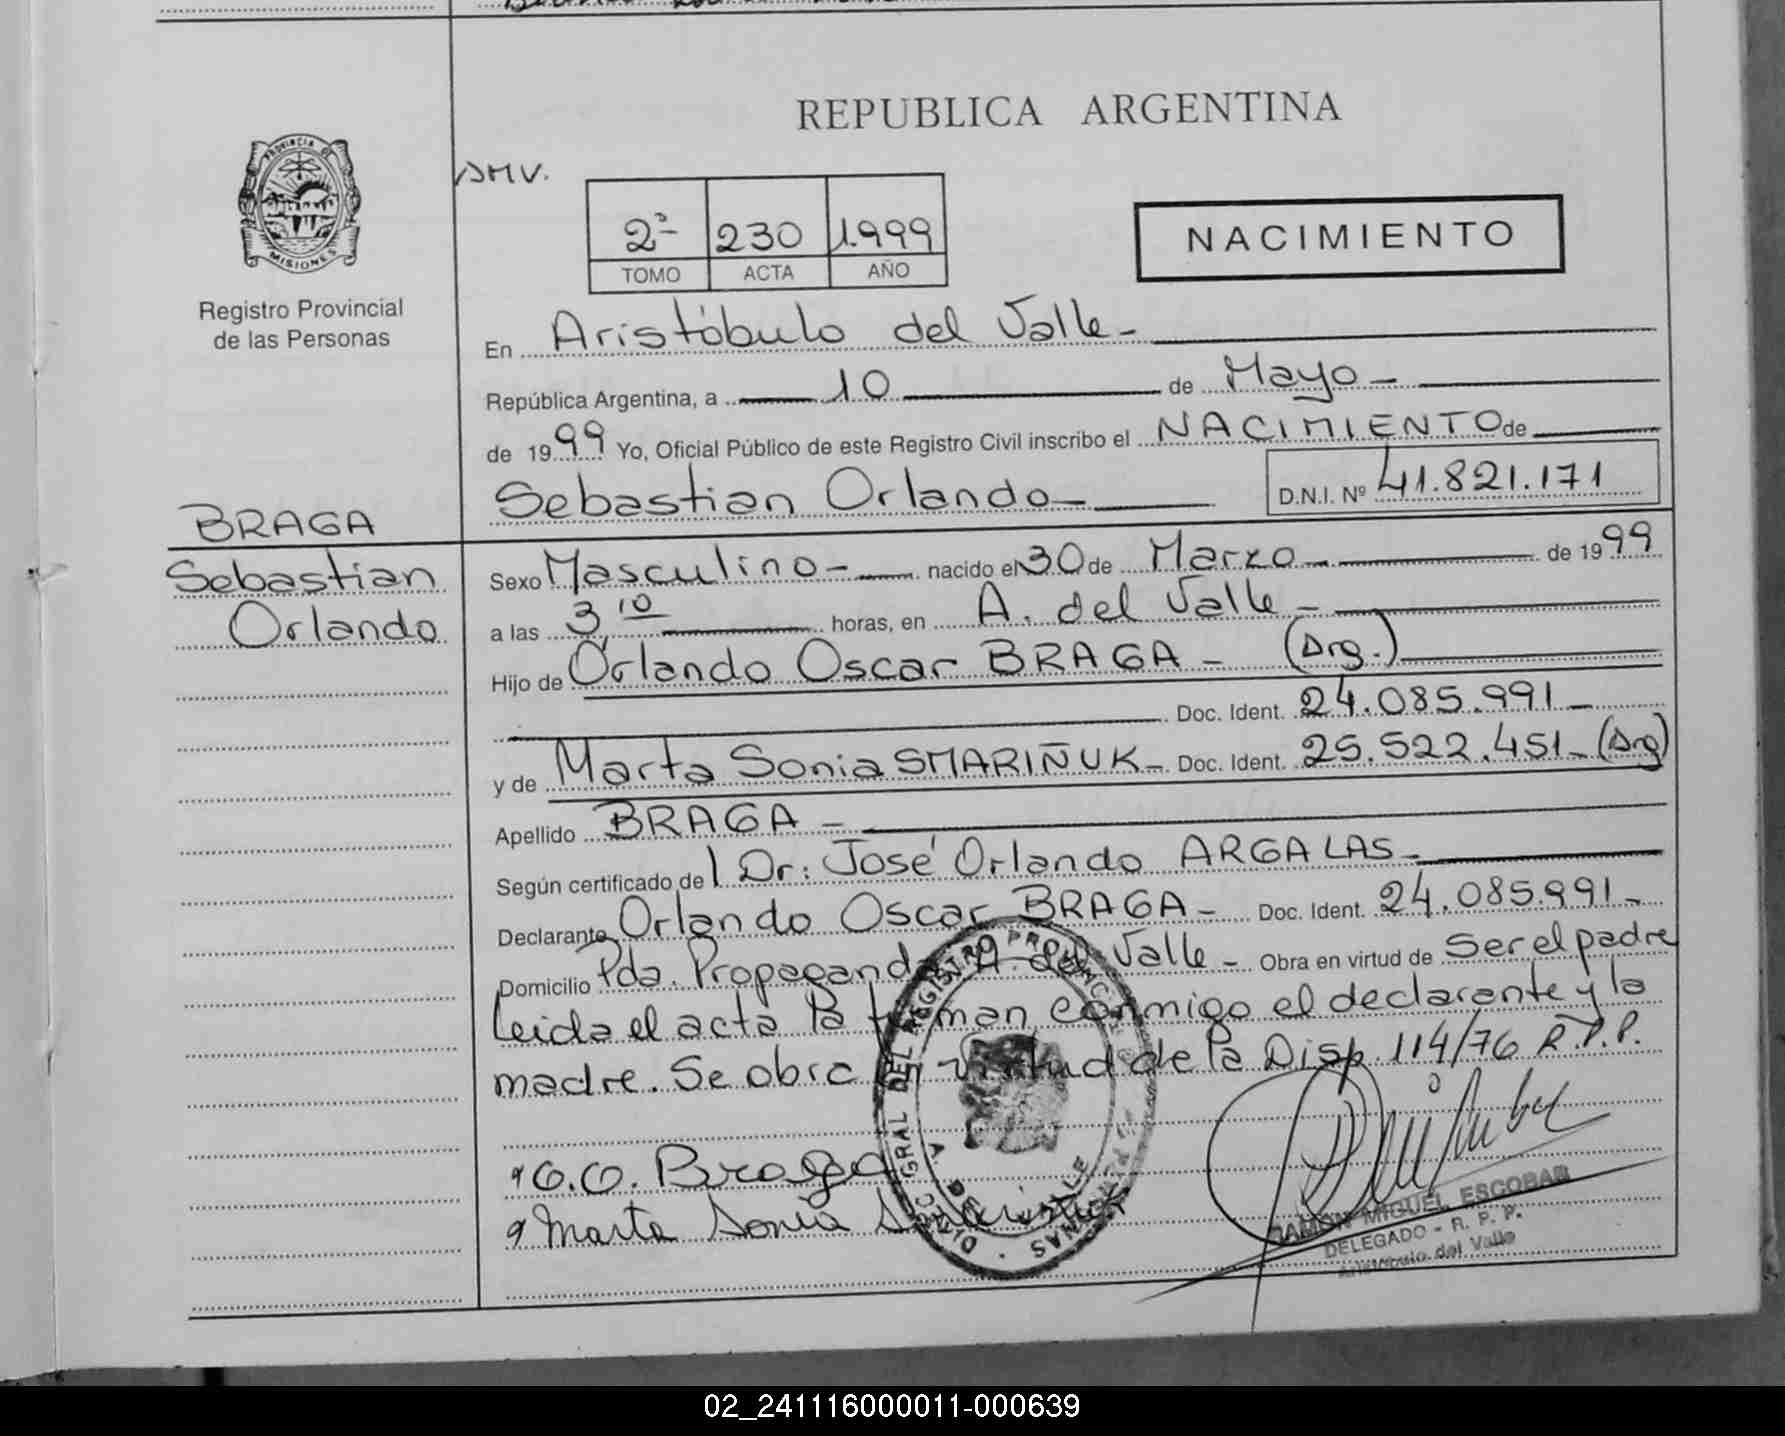 REPUBLICA ARGENTINA
PROVINCIA DE
MISIONES
Registro Provincial
de las Personas
AMV.
2ª 230 1.999
TOMO ACTA AÑO
NACIMIENTO
En Aristóbulo del Valle-
República Argentina, a 10 de Mayo-
de 1999 Yo, Oficial Público de este Registro Civil inscribo el NACIMIENTO de
Sebastian Orlando- D.N.I. Nº 41.821.171
BRAGA
Sebastian
Orlando
Sexo Masculino- nacido el 30 de Marzo- de 1999
a las 3 10 horas, en A. del Valle-
Hijo de Orlando Oscar BRAGA- (Arg.)
Doc. Ident. 24.085.991-
y de Marta Sonia SMARIÑUK- Doc. Ident. 25.522.451-(Arg)
Apellido BRAGA-
Según certificado del Dr: José Orlando ARGALAS-
Declarante Orlando Oscar BRAGA- Doc. Ident. 24.085.991-
Domicilio Pda. Propaganda A. del Valle- Obra en virtud de Ser el padre
Leida el acta la firman conmigo el declarante y la
madre. Se obra en virtud de la Disp. 114/76 R.P.P.
O.O. Braga
Marta Sonia Smariñuk
RAMON MIGUEL ESCOBAR
DELEGADO - R. P. P.
Aristobulo del Valle
02_241116000011-000639